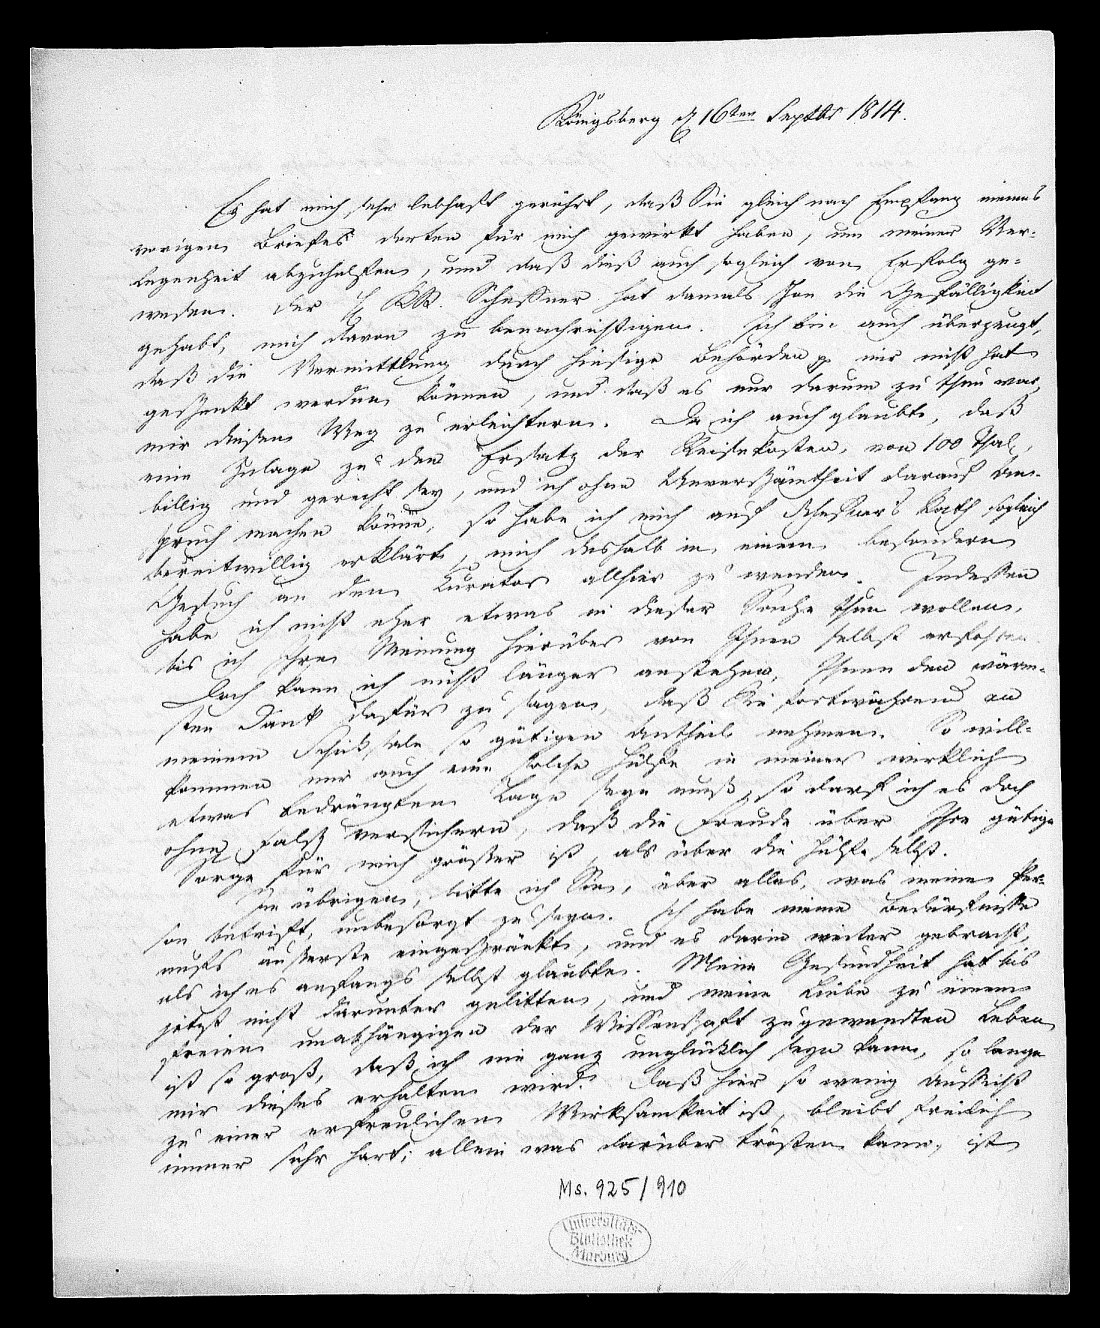 Königsberg d 16ten Septbr 1814.
Es hat mich sehr lebhaft gerührt, daß Sie gleich nach Empfang meines
vorigen Briefes dorten für mich gewirkt haben, um meiner Ver-
legenheit abzuhelfen, und daß dieß auch sogleich von Erfolg ge-
wesen. Der H KR. Scheffner hat damals schon die Gefälligkeit
gehabt, mich davon zu benachrichtigen. Ich bin auch überzeugt,
daß die Vermittlung durch hiesige Behörden mir nicht hat
geschenkt werden können, und daß es nur darum zu thun war,
mir diesen Weg zu erleichtern. Da ich auch glaubte, daß
eine Zulage zu dem Ersatz der Reisekosten, von 100 Thal.,
billig und gerecht sey, und ich ohne Unverschämtheit darauf An-
spruch machen könne, so habe ich mich auf Scheffners Rath sogleich
bereitwillig erklärt, mich deshalb in einem besondern
Gesuch an den Kurator allhier zu wenden. Indessen
habe ich nicht eher etwas in dieser Sache thun wollen,
bis ich Ihre Meinung hierüber von Ihnen selbst erfahren
Doch kann ich nicht länger anstehen, Ihnen den wärm-
sten Dank dafür zu sagen, daß Sie fortwährend an
meinem Schicksale so gütigen Antheil nehmen. So will-
kommen mir auch eine solche Hülfe in meiner wirklich
etwas bedrängten Lage seyn muß, so darf ich es doch
ohne Falsch versichern, daß die Freude über Ihre gütige
Sorge für mich größer ist, als über die Hülfe selbst.
Im übrigen, bitte ich Sie, über alles, was meine Per-
son betrifft, unbesorgt zu seyn. Ich habe meine Bedürfnisse
aufs äußerste eingeschränkt, und es darin weiter gebracht,
als ich es anfangs selbst glaubte. Meine Gesundheit hat bis
jetzt nicht darunter gelitten, und meine Liebe zu einem
freien unabhängigen der Wissenschaft zugewendten Leben
ist so groß, daß ich nie ganz unglücklich seyn kann, so lange
mir dieses erhalten wird. Daß hier so wenig Aussicht
zu einer erfreulichen Wirksamkeit ist, bleibt freilich
immer sehr hart; allein was darüber trösten kann, ist
Ms. 925/910
Universitäts-
Bibliothek
Marburg